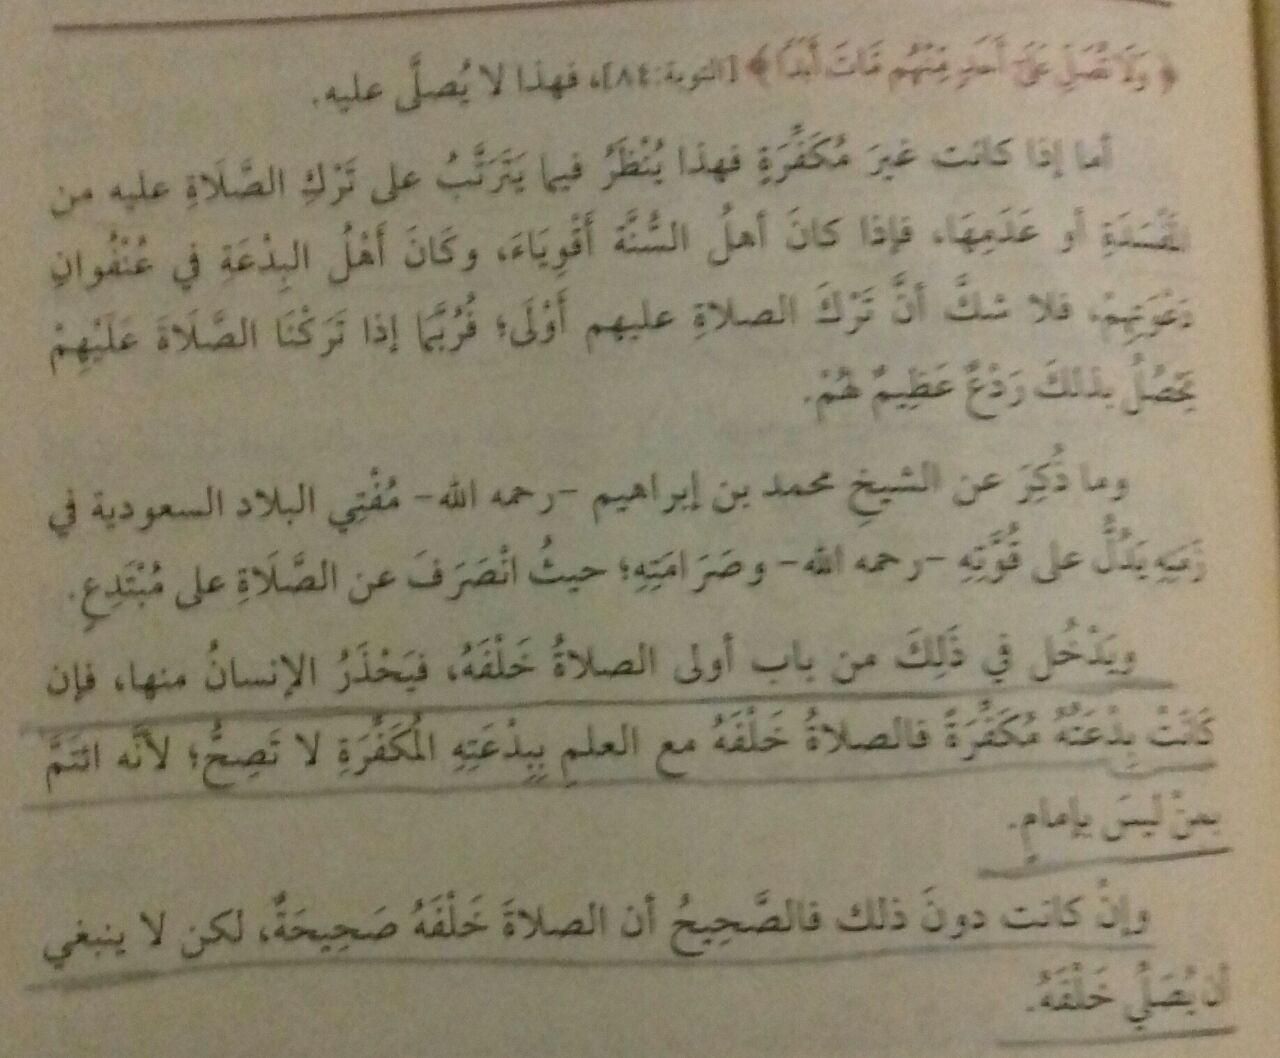 ﴿ وَلَا تُصَلِّ عَلَىٰ أَحَدٍ مِّنْهُم مَّاتَ أَبَدًا ﴾ [التوبة:٨٤]، فهذا لا يُصلَّى عليه.
أما إذا كانت غيرَ مُكَفِّرَةٍ فهذا يُنْظَرُ فيما يَتَرَتَّبُ على تَرْكِ الصَّلَاةِ عليه من
المَفْسَدَةِ أو عَدَمِهَا، فإذا كانَ أهلُ السُّنَّة أَقْوِيَاءَ، وكَانَ أَهْلُ البِدْعَةِ في عُنْفُوانِ
دَعْوَتِهِمْ، فلا شكَّ أنَّ تَرْكَ الصلاةِ عليهم أَوْلَى؛ فَرُبَّمَا إذا تَرَكْنَا الصَّلَاةَ عَلَيْهِمْ
يَحْصُلُ بذلكَ رَدْعٌ عَظِيمٌ لَهُمْ.
وما ذُكِرَ عن الشيخِ محمد بن إبراهيم -رحمه الله- مُفْتِي البلاد السعودية في
زَمَنِهِ يَدُلُّ على قُوَّتِهِ -رحمه الله- وصَرَامَتِهِ؛ حيثُ انْصَرَفَ عن الصَّلَاةِ على مُبْتَدِعٍ.
ويَدْخُل في ذَلِكَ من باب أولى الصلاةُ خَلْفَهُ، فيَحْذَرُ الإنسانُ منها، فإن
كَانَتْ بِدْعَتُهُ مُكَفِّرَةً فالصلاةُ خَلْفَهُ مع العلمِ بِبِدْعَتِهِ المُكَفِّرَةِ لا تَصِحُّ؛ لأنَّه ائتَمَّ
بمنْ ليسَ بإمامٍ.
وإنْ كانت دونَ ذلك فالصَّحِيحُ أن الصلاةَ خَلْفَهُ صَحِيحَةٌ، لكن لا ينبغي
أن يُصَلِّي خَلْفَهُ.